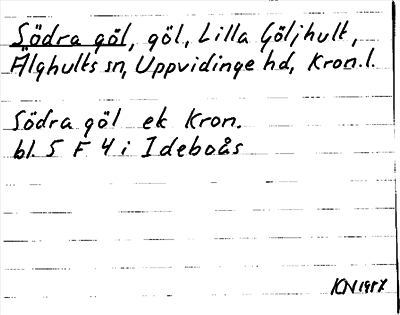 Södra göl, göl, Lilla Göljhult,
Älghults sn, Uppvidinge hd, Kron.l.
Södra göl ek Kron.
bl. 5 F 4 i Ideboås